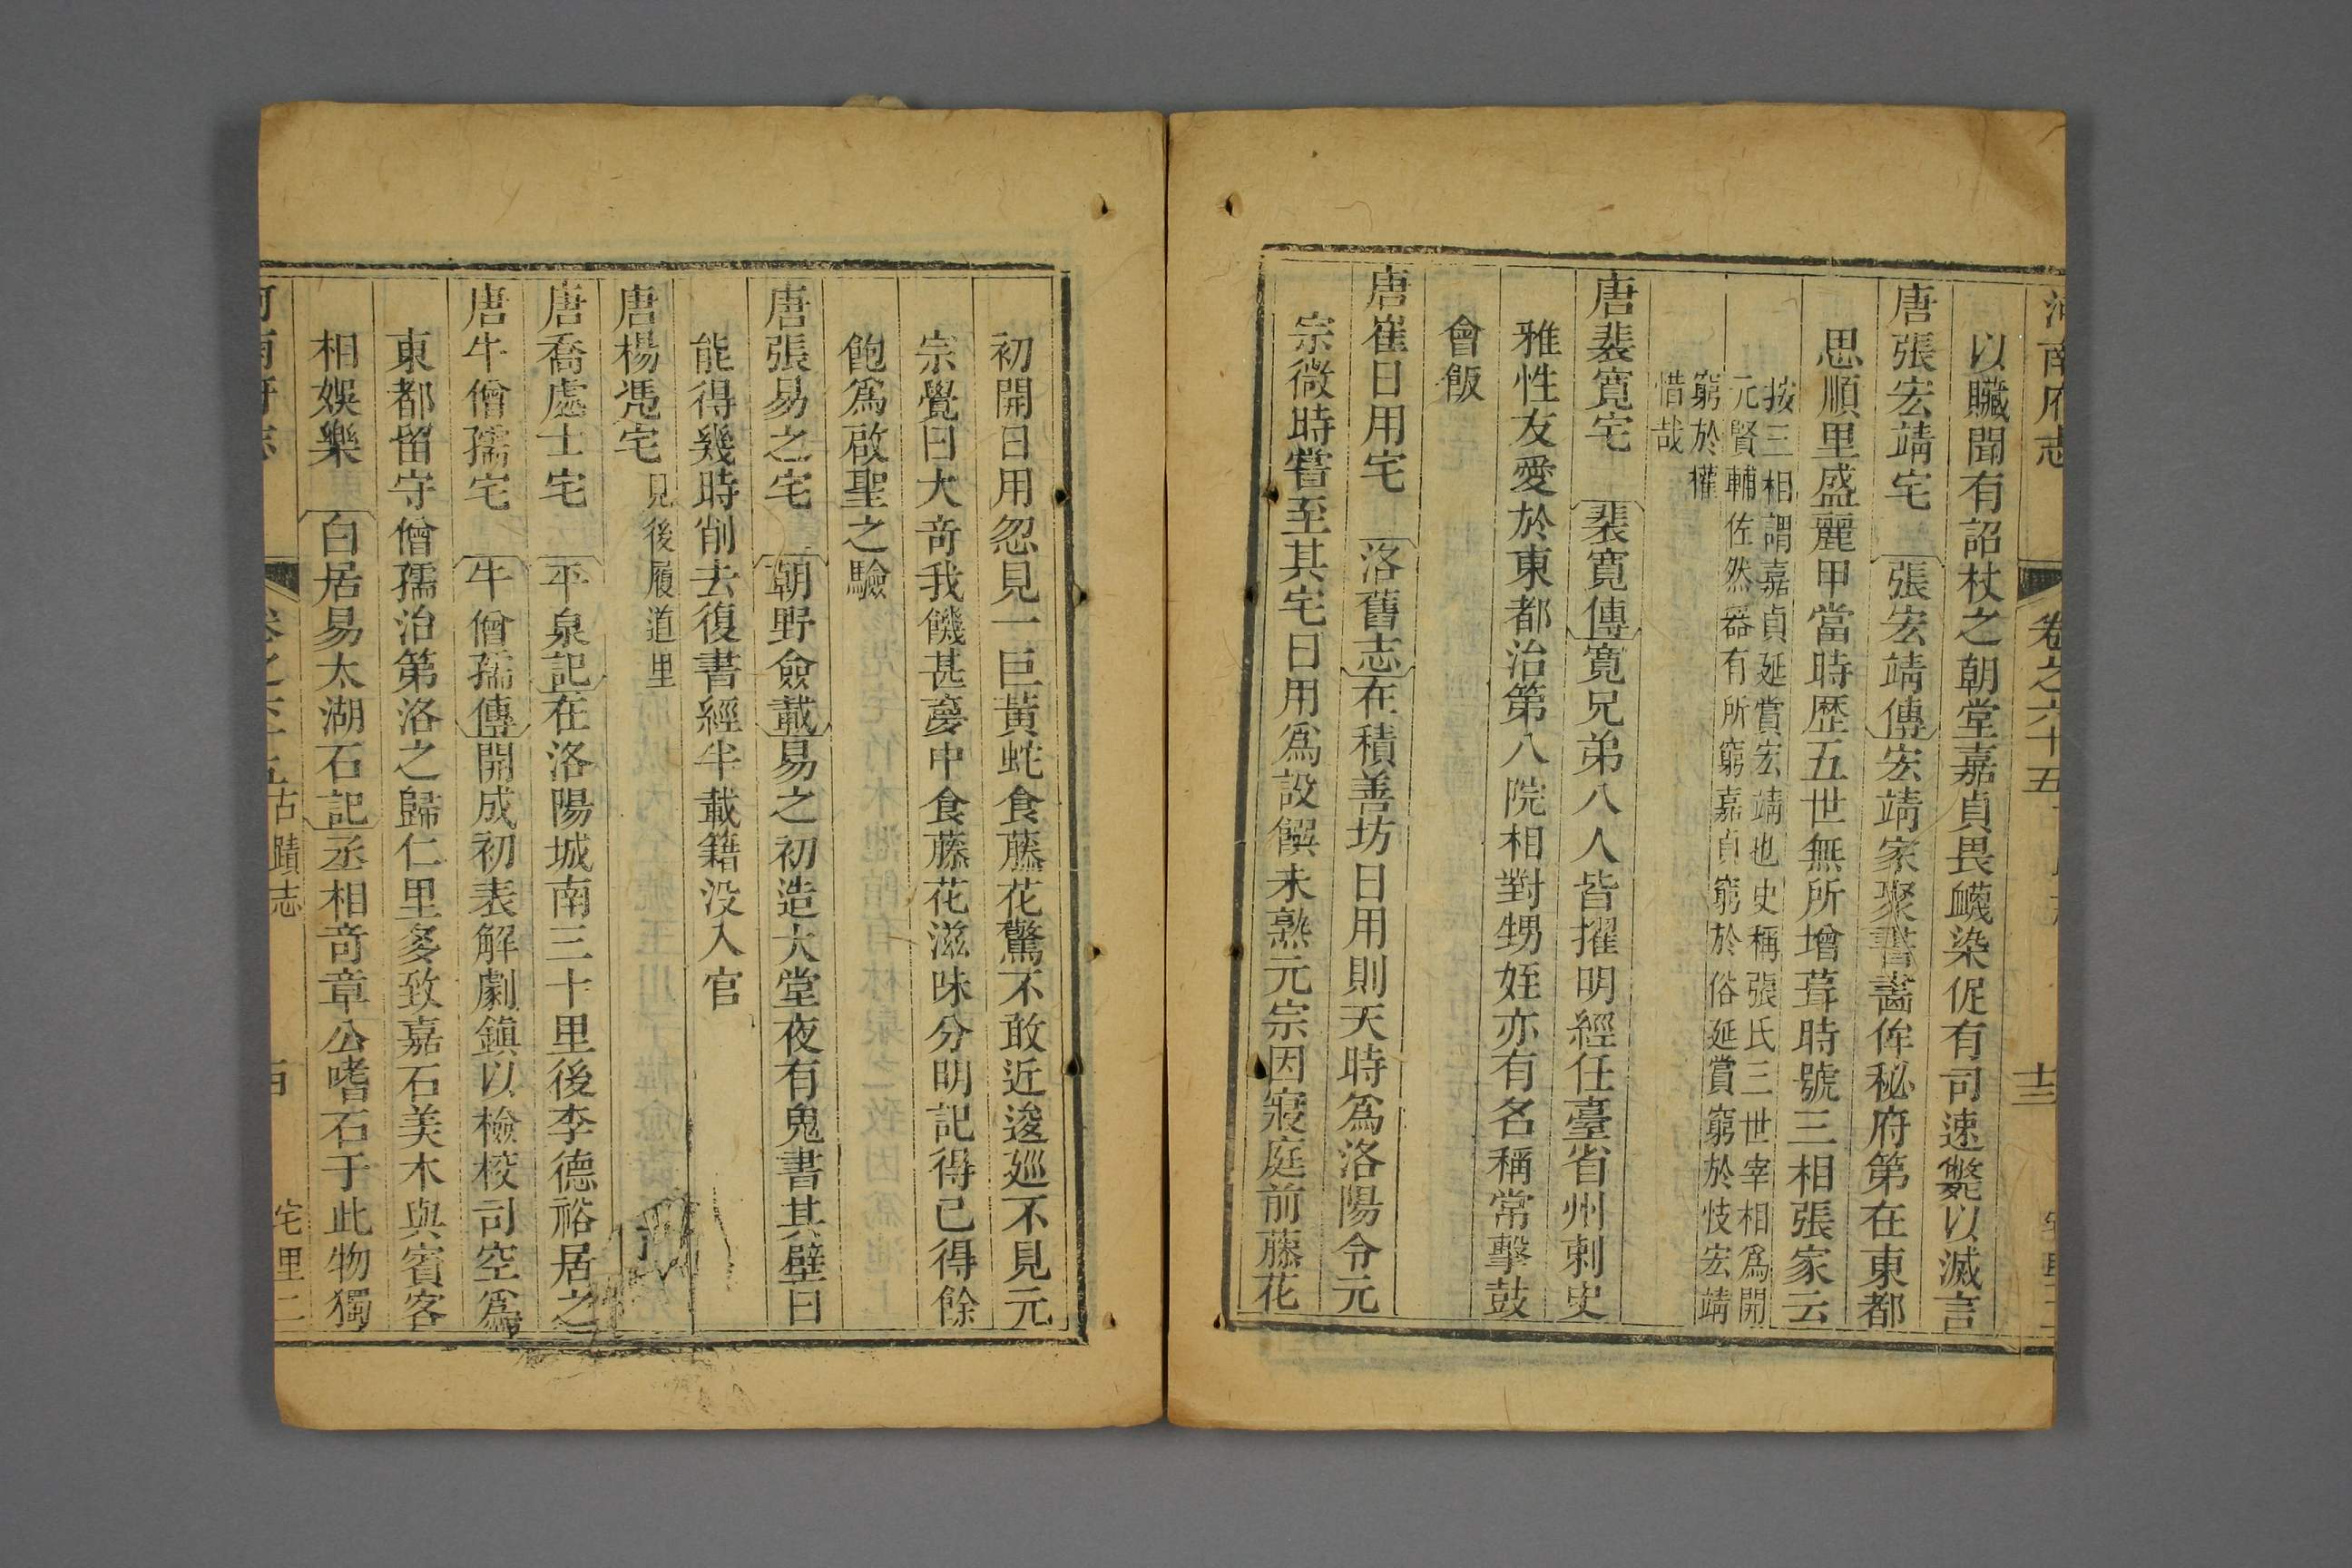 河南府志 卷之六十五
以贓聞有詔杖之朝堂嘉貞畏衊染促有司速斃以滅言
唐張宏靖宅 張宏靖傳宏靖家聚書畫侔秘府第在東都
思順里盛麗甲當時歷五世無所增葺時號三相張家云
按三相謂嘉貞延賞宏靖也史稱張氏三世宰相為開
元賢輔佐然器有所窮嘉貞窮於俗延賞窮於忮宏靖
窮於權
惜哉
唐裴寬宅 裴寬傳寬兄弟八人皆擢明經任臺省州刺史
雅性友愛於東都治第八院相對甥姪亦有名稱常擊鼓
會飯
唐崔日用宅 洛舊志在積善坊日用則天時為洛陽令元
宗微時嘗至其宅日用為設饌未熟元宗因寢庭前藤花
初開日用忽見一巨黃蛇食藤花驚不敢近逡巡不見元
宗覺曰大奇我饑甚夢中食藤花滋味分明記得已得餘
飽為啟聖之驗
唐張易之宅 朝野僉載易之初造大堂夜有鬼書其壁曰
能得幾時削去復書經半載籍沒入官
唐楊憑宅見後履道里
唐喬處士宅 平泉記在洛陽城南三十里後李德裕居之
唐牛僧孺宅 牛僧孺傳開成初表解劇鎮以檢校司空為
東都留守僧孺治第洛之歸仁里多致嘉石美木與賓客
相娛樂 白居易太湖石記丞相奇章公嗜石于此物獨
古蹟志 宅里二